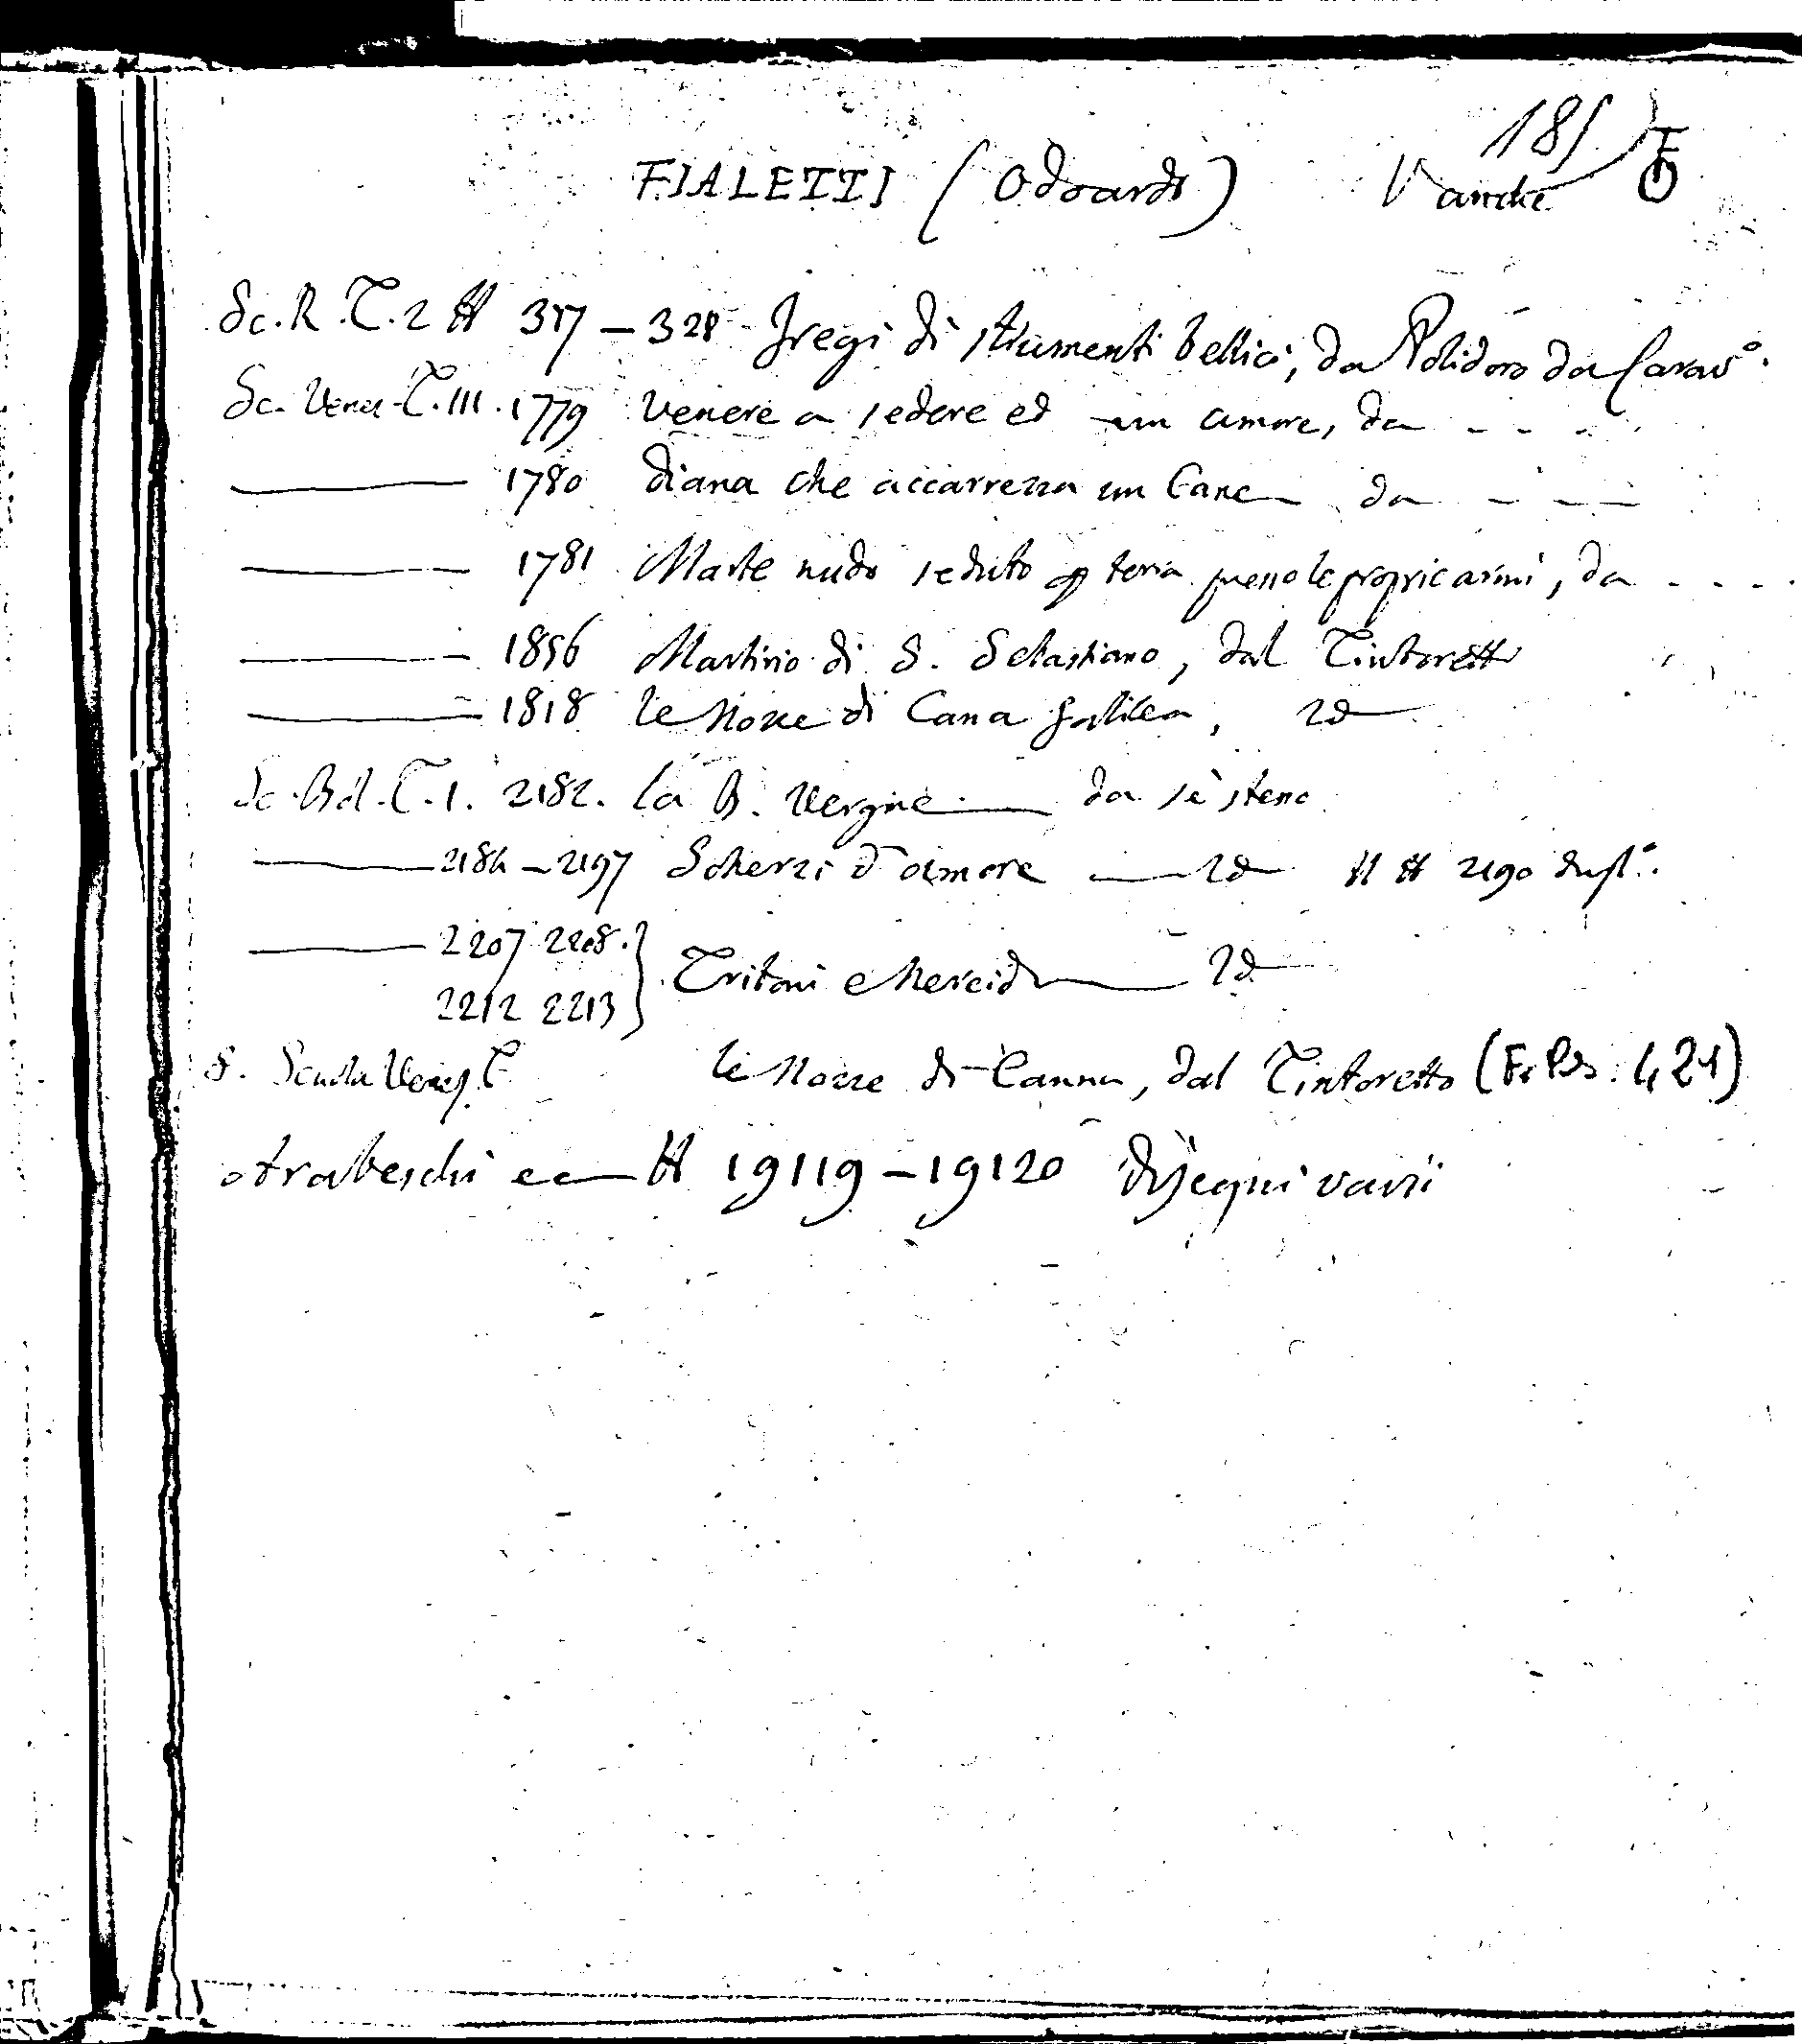 185
FIALETTI (Odoardo) V anche
Sc. R. T. 2 # 317 – 328 Fregi di strumenti bellici, da Polidoro da Carav°.
Sc. Venez. T. III. 1779 Venere a sedere ed un amore, da - - - -
1780 Diana che accarrezza un Cane da - - -
1781 Marte nudo seduto p terra presso le proprie armi, da - - - -
1856 Martirio di S. Sebastiano, dal Tintoretto
1818 le Nozze di Cana Galilea, Id
Sc. Bol. T. 1. 2182. La B. Vergine da sè steso
2184 – 2197 Scherzi d'amore Id Il # 2190 dupl°.
2207 2208.
Tritoni e Nereidi Id
2212 2213
S. Scuola Venez. T le Nozze di Canna, dal Tintoretto (F. Ps. 421)
Arabeschi ec # 19119 – 19120 Disegni varii